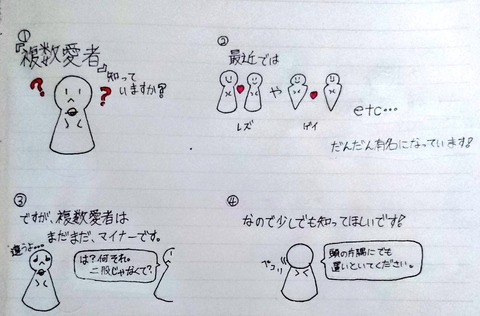 ①
『複数愛者』
知って
いますか?
? ?
②
最近では
や
etc…
レズ
ゲイ
だんだん有名になっています!
③
ですが、複数愛者は
まだまだ、マイナーです。
違うよ…
は?何それ。
二股じゃなくて?
④
なので少しでも知ってほしいです!
ペコリ
頭の片隅にでも
置いといてください。